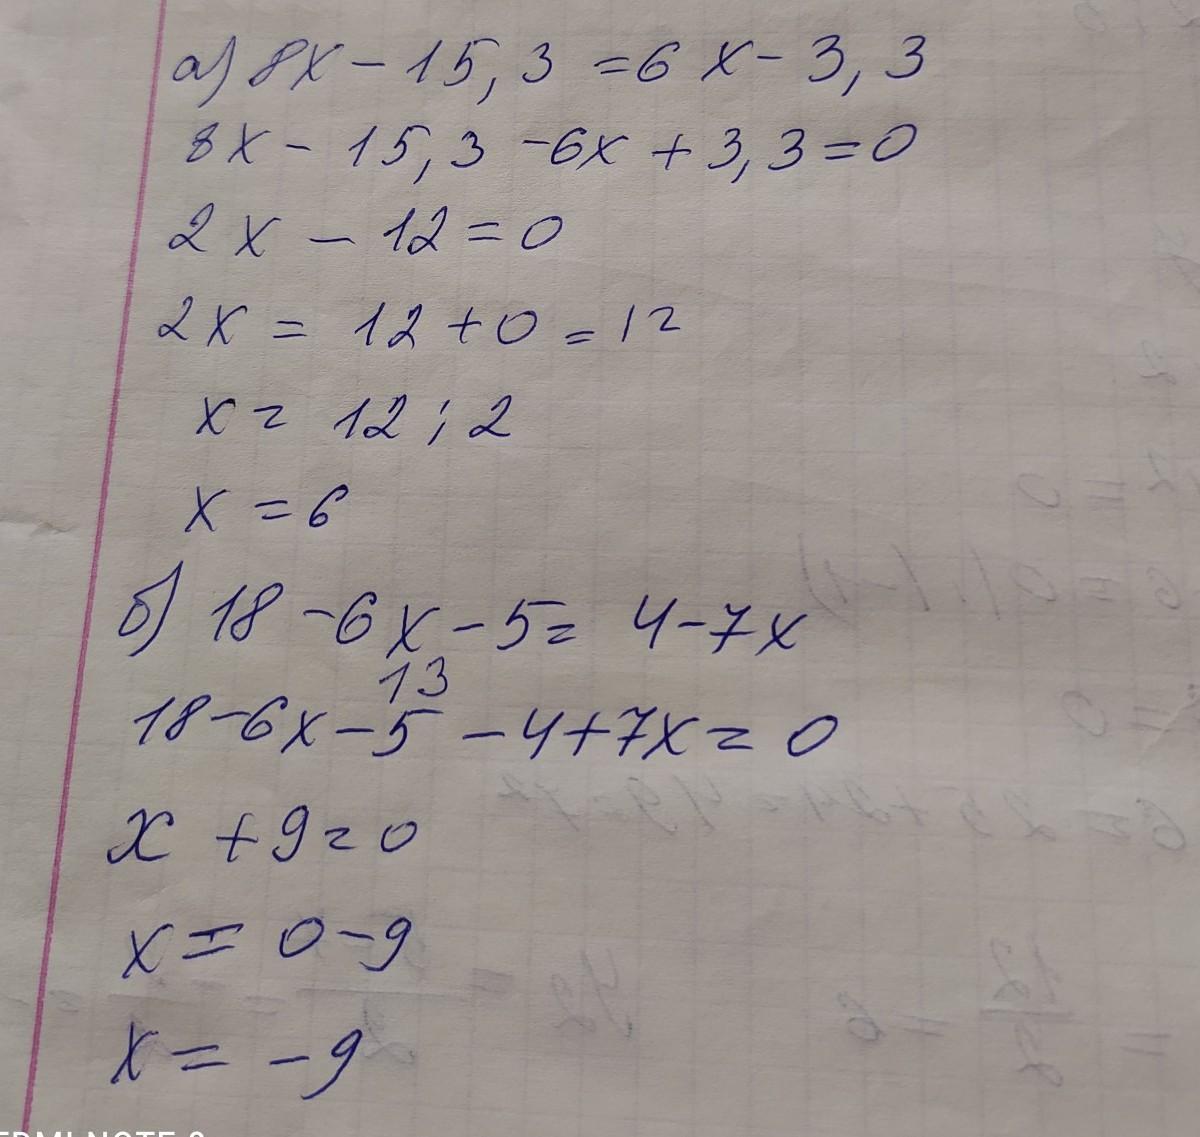 а) 8x - 15,3 = 6x - 3,3
8x - 15,3 - 6x + 3,3 = 0
2x - 12 = 0
2x = 12 + 0 = 12
x = 12 : 2
x = 6
б) 18 - 6x - 5 = 4 - 7x
13
18 - 6x - 5 - 4 + 7x = 0
x + 9 = 0
x = 0 - 9
x = -9